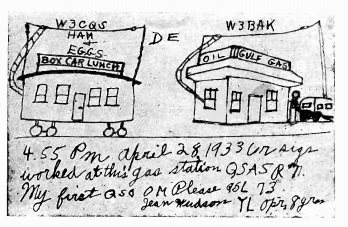 W3CQS
W3BAK
HAM
+
EGGS
DE
BOX CAR LUNCH
OIL GULF GAS
4.55 Pm April 28, 1933 Ur sigs
worked at this gas station QSA5 R 7.
My first QSO OM Please QSL 73.
Jean Hudson YL opr, 8 yrs